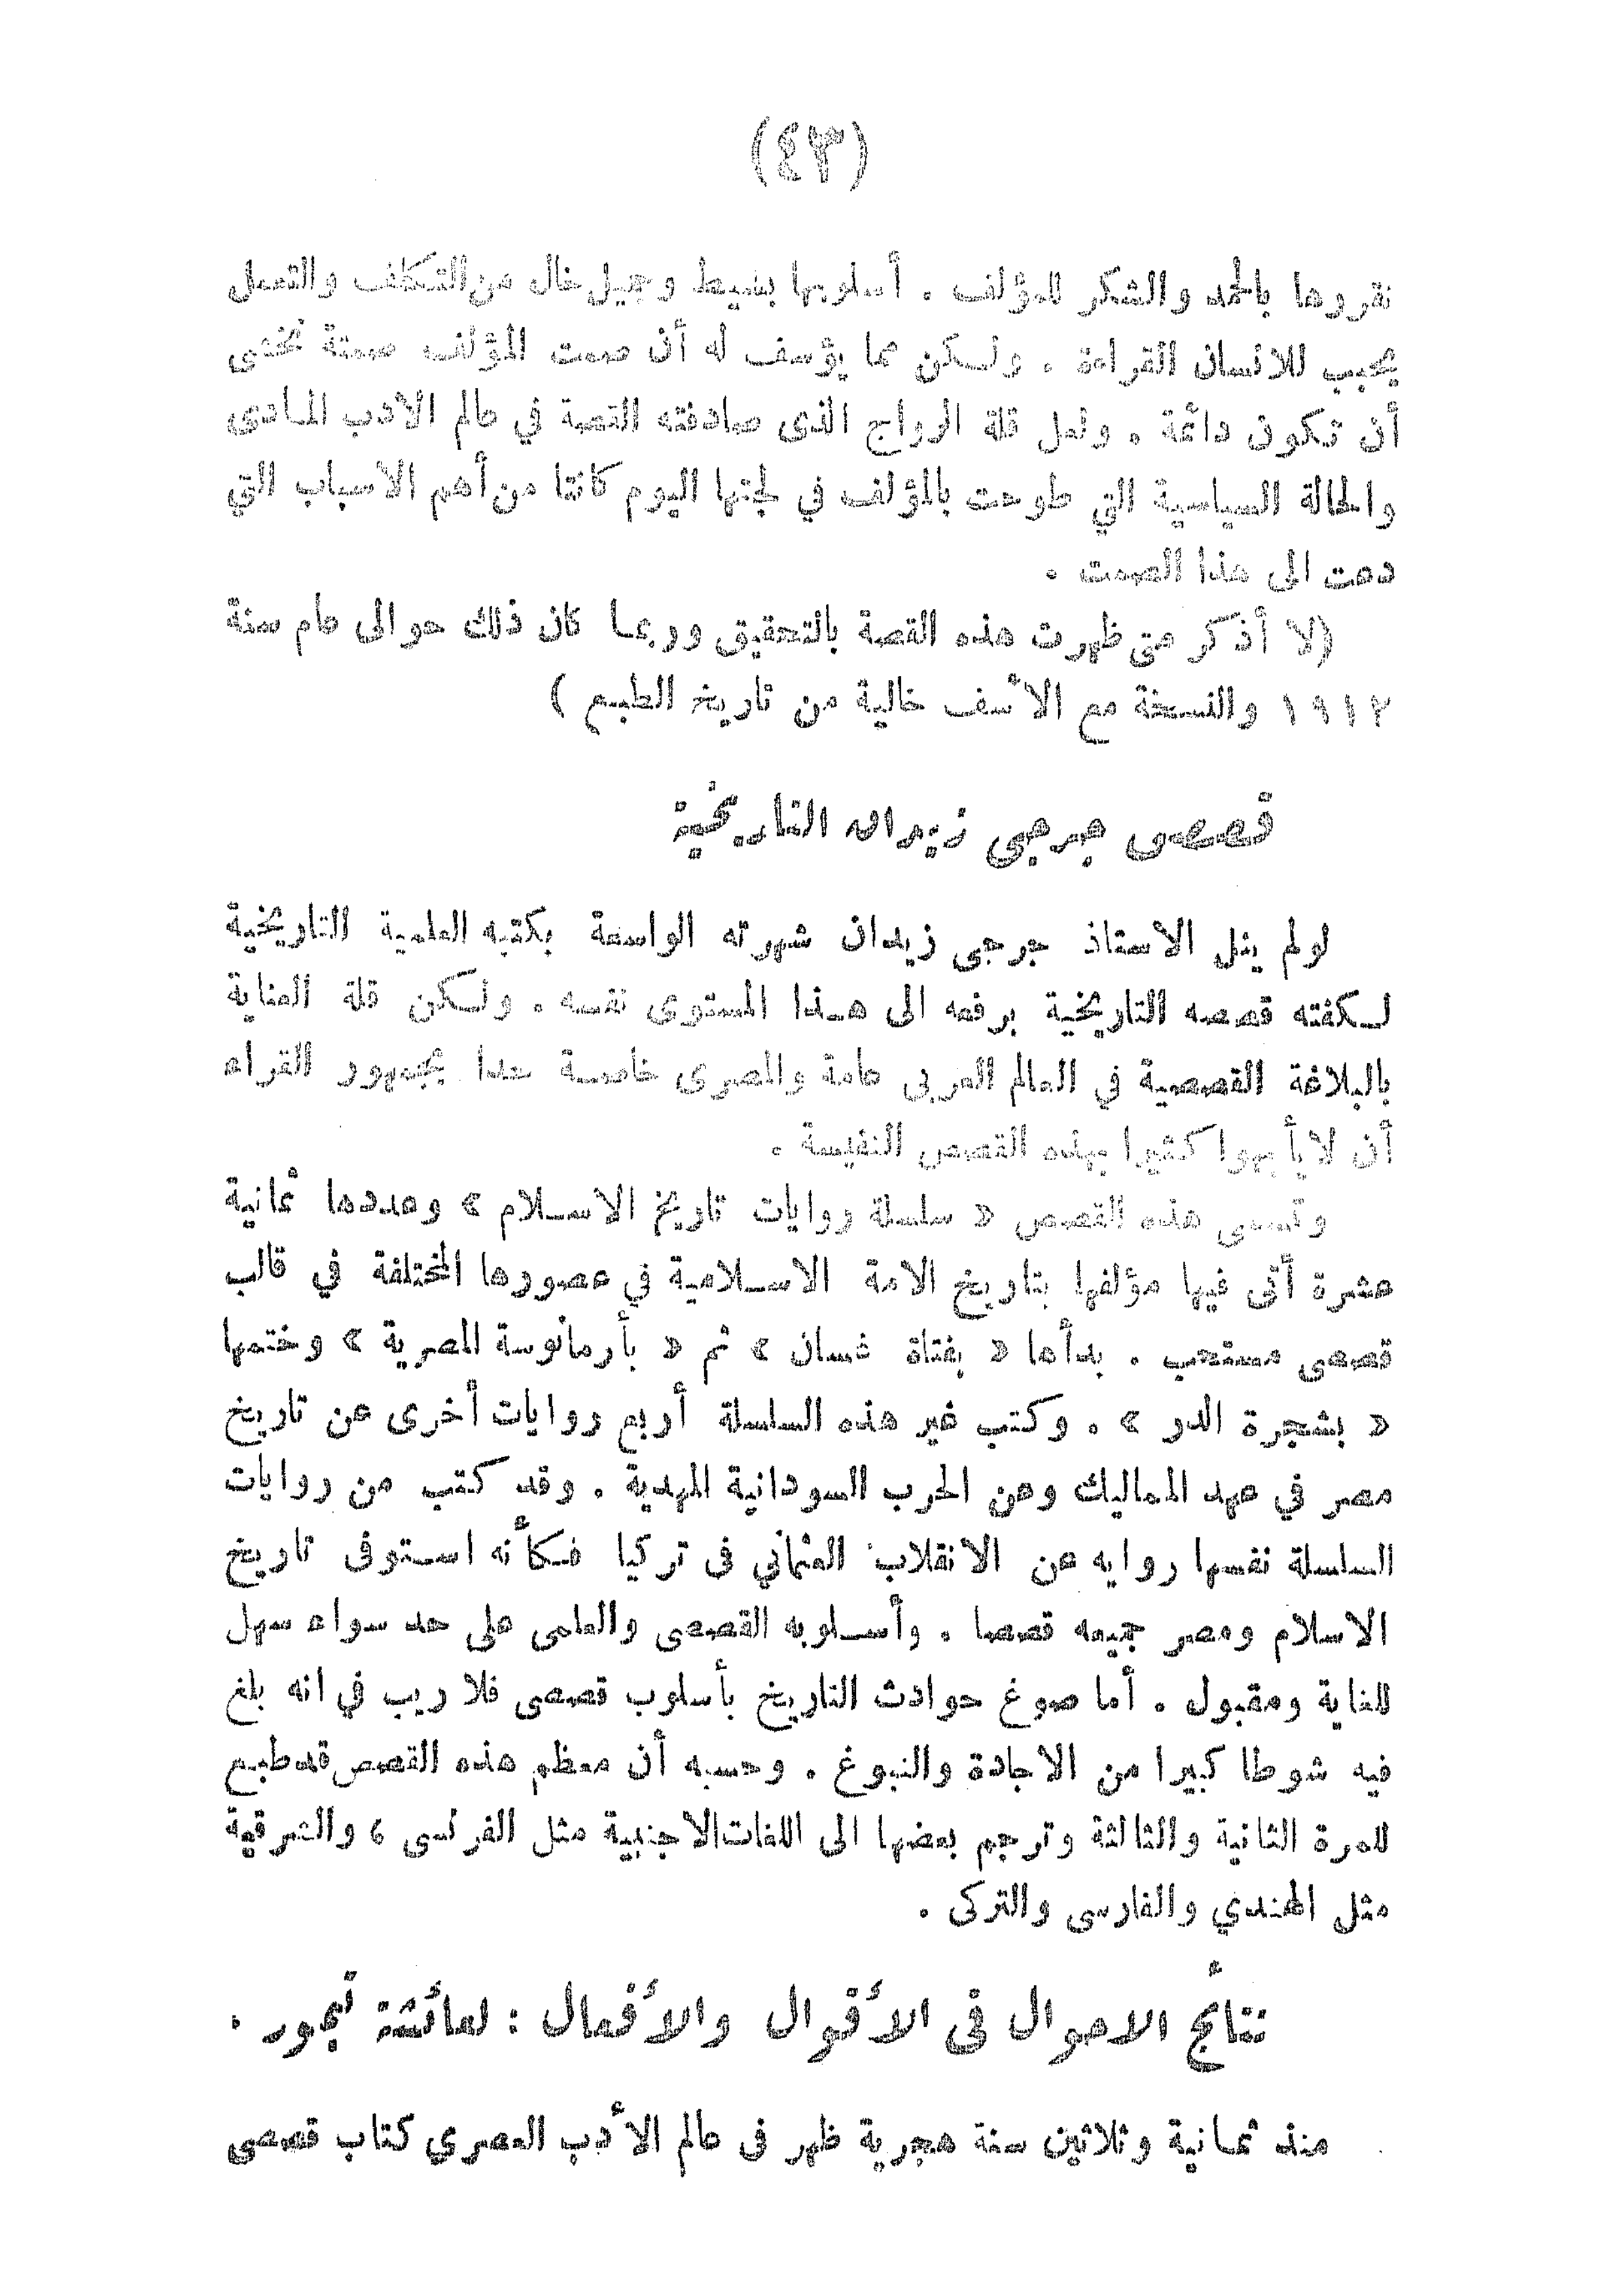 (٤٣)
نقروها بالحمد والشكر للمؤلف . أسلوبها بسيط وجميل خال من التكلف والتعمل
يحبب للانسان القراءة . ولكن مما يؤسف له أن صمت المؤلف صمتة نخشى
أن تكون دائمة . ولعل قلة الرواج الذى صادفته القصة في عالم الادب المادى
والحالة السياسية التي طوحت بالمؤلف في لجتها اليوم كانتا من أهم الاسباب التي
دعت الى هذا الصمت .
(لا أذكر متى ظهرت هذه القصة بالتحقيق وربما كان ذلك حوالى عام سنة
١٩١٢ والنسخة مع الأسف خالية من تاريخ الطبع )
قصص جرجى زيدان التاريخية
لولم ينل الاستاذ جرجى زيدان شهرته الواسعة بكتبه العلمية التاريخية
لكفته قصصه التاريخية برفعه الى هذا المستوى نفسه . ولكن قلة العناية
بالبلاغة القصصية في العالم العربى عامة والمصرى خاصة حدا بجمهور القراء
أن لايأبهوا كثيرا بهذه القصص النفيسة .
وتسمى هذه القصص « سلسلة روايات تاريخ الاسلام » وعددها ثمانية
عشرة أتى فيها مؤلفها بتاريخ الامة الاسلامية في عصورها المختلفة في قالب
قصصى مستحب . بدأها « بفتاة غسان » ثم « بأرمانوسة المصرية » وختمها
« بشجرة الدر » . وكتب غير هذه السلسلة أربع روايات أخرى عن تاريخ
مصر في عهد المماليك وعن الحرب السودانية المهدية . وقد كتب من روايات
السلسلة نفسها روايه عن الانقلاب العثماني فى تركيا فكأنه استوفى تاريخ
الاسلام ومصر جميعه قصصا . وأسلوبه القصصى والعلمى على حد سواء سهل
للغاية ومقبول . أما صوغ حوادث التاريخ بأسلوب قصصى فلا ريب في انه بلغ
فيه شوطا كبيرا من الاجادة والنبوغ . وحسبه أن معظم هذه القصص قدطبع
للمرة الثانية والثالثة وترجم بعضها الى اللغات الاجنبية مثل الفرنسى ، والشرقية
مثل الهندي والفارسى والتركى .
نتائج الاحوال فى الأقوال والأفعال : لعائشة تيمور .
منذ ثمانية وثلاثين سنة هجرية ظهر فى عالم الأدب العصري كتاب قصصى